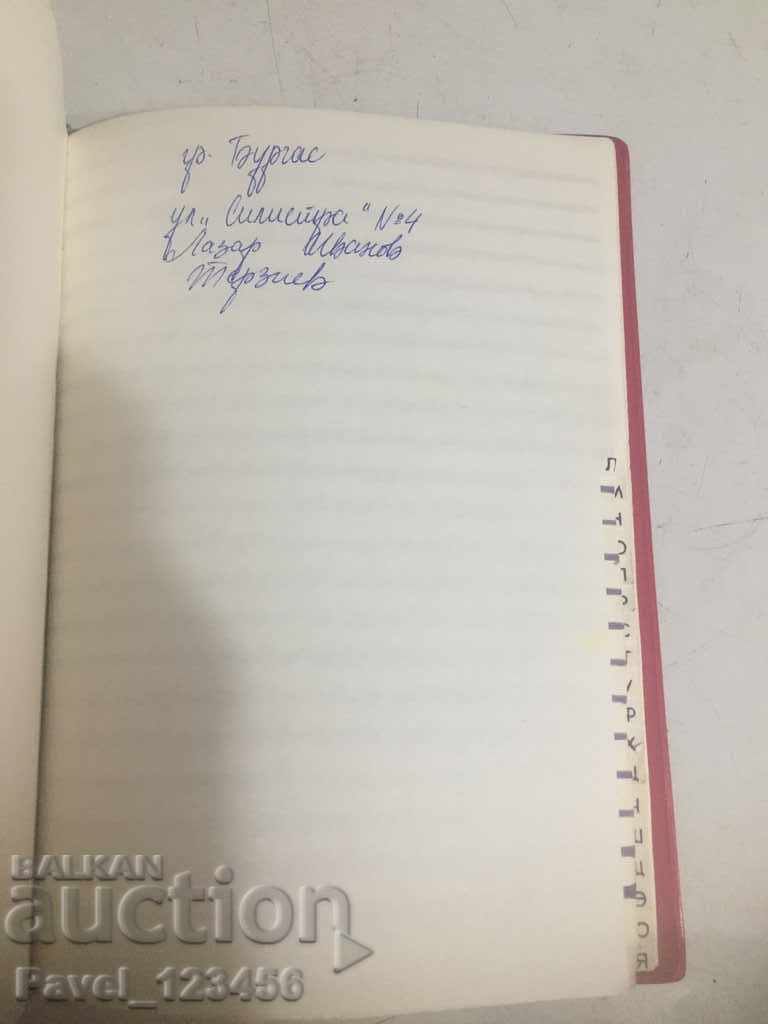 гр. Бургас
ул. „Силистра“ №4
Лазар Иванов
Терзиев
BALKAN
auction
Pavel_123456